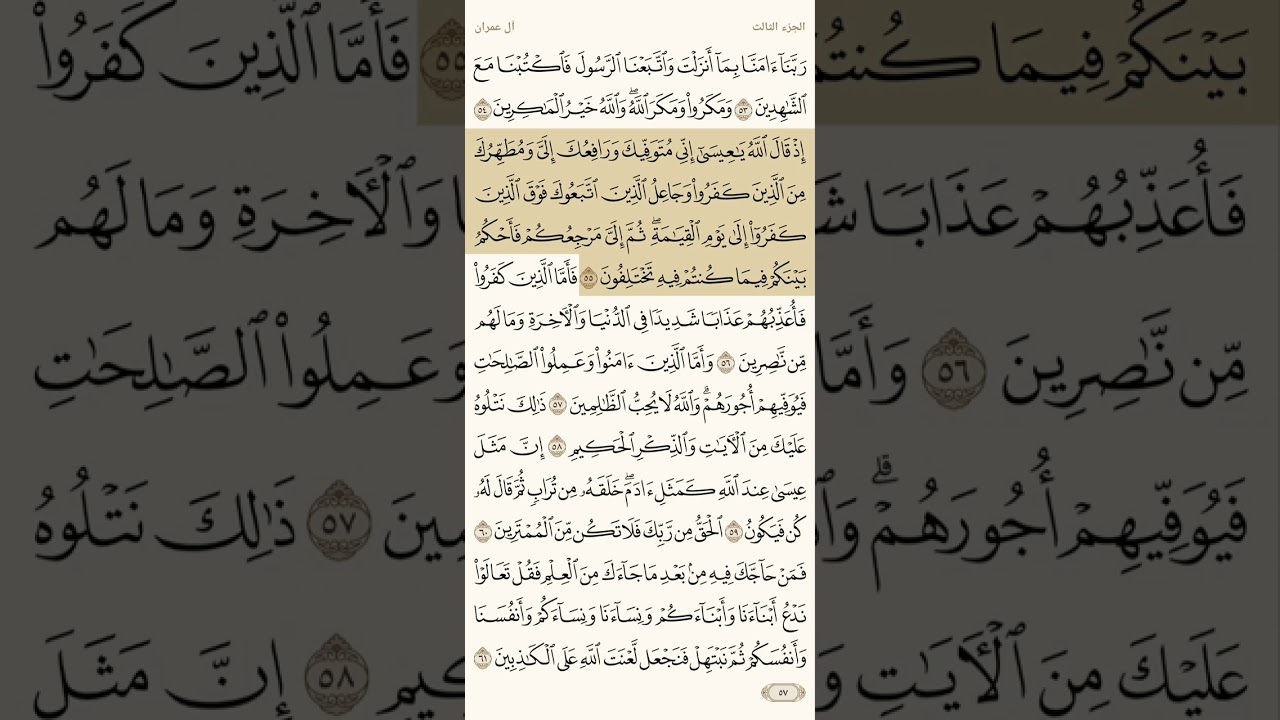 الجزء الثالث
آل عمران
رَبَّنَآ ءَامَنَّا بِمَآ أَنزَلْتَ وَٱتَّبَعْنَا ٱلرَّسُولَ فَٱكْتُبْنَا مَعَ
ٱلشَّٰهِدِينَ ٥٣ وَمَكَرُوا۟ وَمَكَرَ ٱللَّهُ ۖ وَٱللَّهُ خَيْرُ ٱلْمَٰكِرِينَ ٥٤
إِذْ قَالَ ٱللَّهُ يَٰعِيسَىٰٓ إِنِّى مُتَوَفِّيكَ وَرَافِعُكَ إِلَىَّ وَمُطَهِّرُكَ
مِنَ ٱلَّذِينَ كَفَرُوا۟ وَجَاعِلُ ٱلَّذِينَ ٱتَّبَعُوكَ فَوْقَ ٱلَّذِينَ
كَفَرُوٓا۟ إِلَىٰ يَوْمِ ٱلْقِيَٰمَةِ ۖ ثُمَّ إِلَىَّ مَرْجِعُكُمْ فَأَحْكُمُ
بَيْنَكُمْ فِيمَا كُنتُمْ فِيهِ تَخْتَلِفُونَ ٥٥ فَأَمَّا ٱلَّذِينَ كَفَرُوا۟
فَأُعَذِّبُهُمْ عَذَابًا شَدِيدًا فِى ٱلدُّنْيَا وَٱلْءَاخِرَةِ وَمَا لَهُم
مِّن نَّٰصِرِينَ ٥٦ وَأَمَّا ٱلَّذِينَ ءَامَنُوا۟ وَعَمِلُوا۟ ٱلصَّٰلِحَٰتِ
فَيُوَفِّيهِمْ أُجُورَهُمْ ۗ وَٱللَّهُ لَا يُحِبُّ ٱلظَّٰلِمِينَ ٥٧ ذَٰلِكَ نَتْلُوهُ
عَلَيْكَ مِنَ ٱلْءَايَٰتِ وَٱلذِّكْرِ ٱلْحَكِيمِ ٥٨ إِنَّ مَثَلَ
عِيسَىٰ عِندَ ٱللَّهِ كَمَثَلِ ءَادَمَ ۖ خَلَقَهُۥ مِن تُرَابٍ ثُمَّ قَالَ لَهُۥ
كُن فَيَكُونُ ٥٩ ٱلْحَقُّ مِن رَّبِّكَ فَلَا تَكُن مِّنَ ٱلْمُمْتَرِينَ ٦٠
فَمَنْ حَآجَّكَ فِيهِ مِنۢ بَعْدِ مَا جَآءَكَ مِنَ ٱلْعِلْمِ فَقُلْ تَعَالَوْا۟
نَدْعُ أَبْنَآءَنَا وَأَبْنَآءَكُمْ وَنِسَآءَنَا وَنِسَآءَكُمْ وَأَنفُسَنَا
وَأَنفُسَكُمْ ثُمَّ نَبْتَهِلْ فَنَجْعَل لَّعْنَتَ ٱللَّهِ عَلَى ٱلْكَٰذِبِينَ ٦١
٥٧